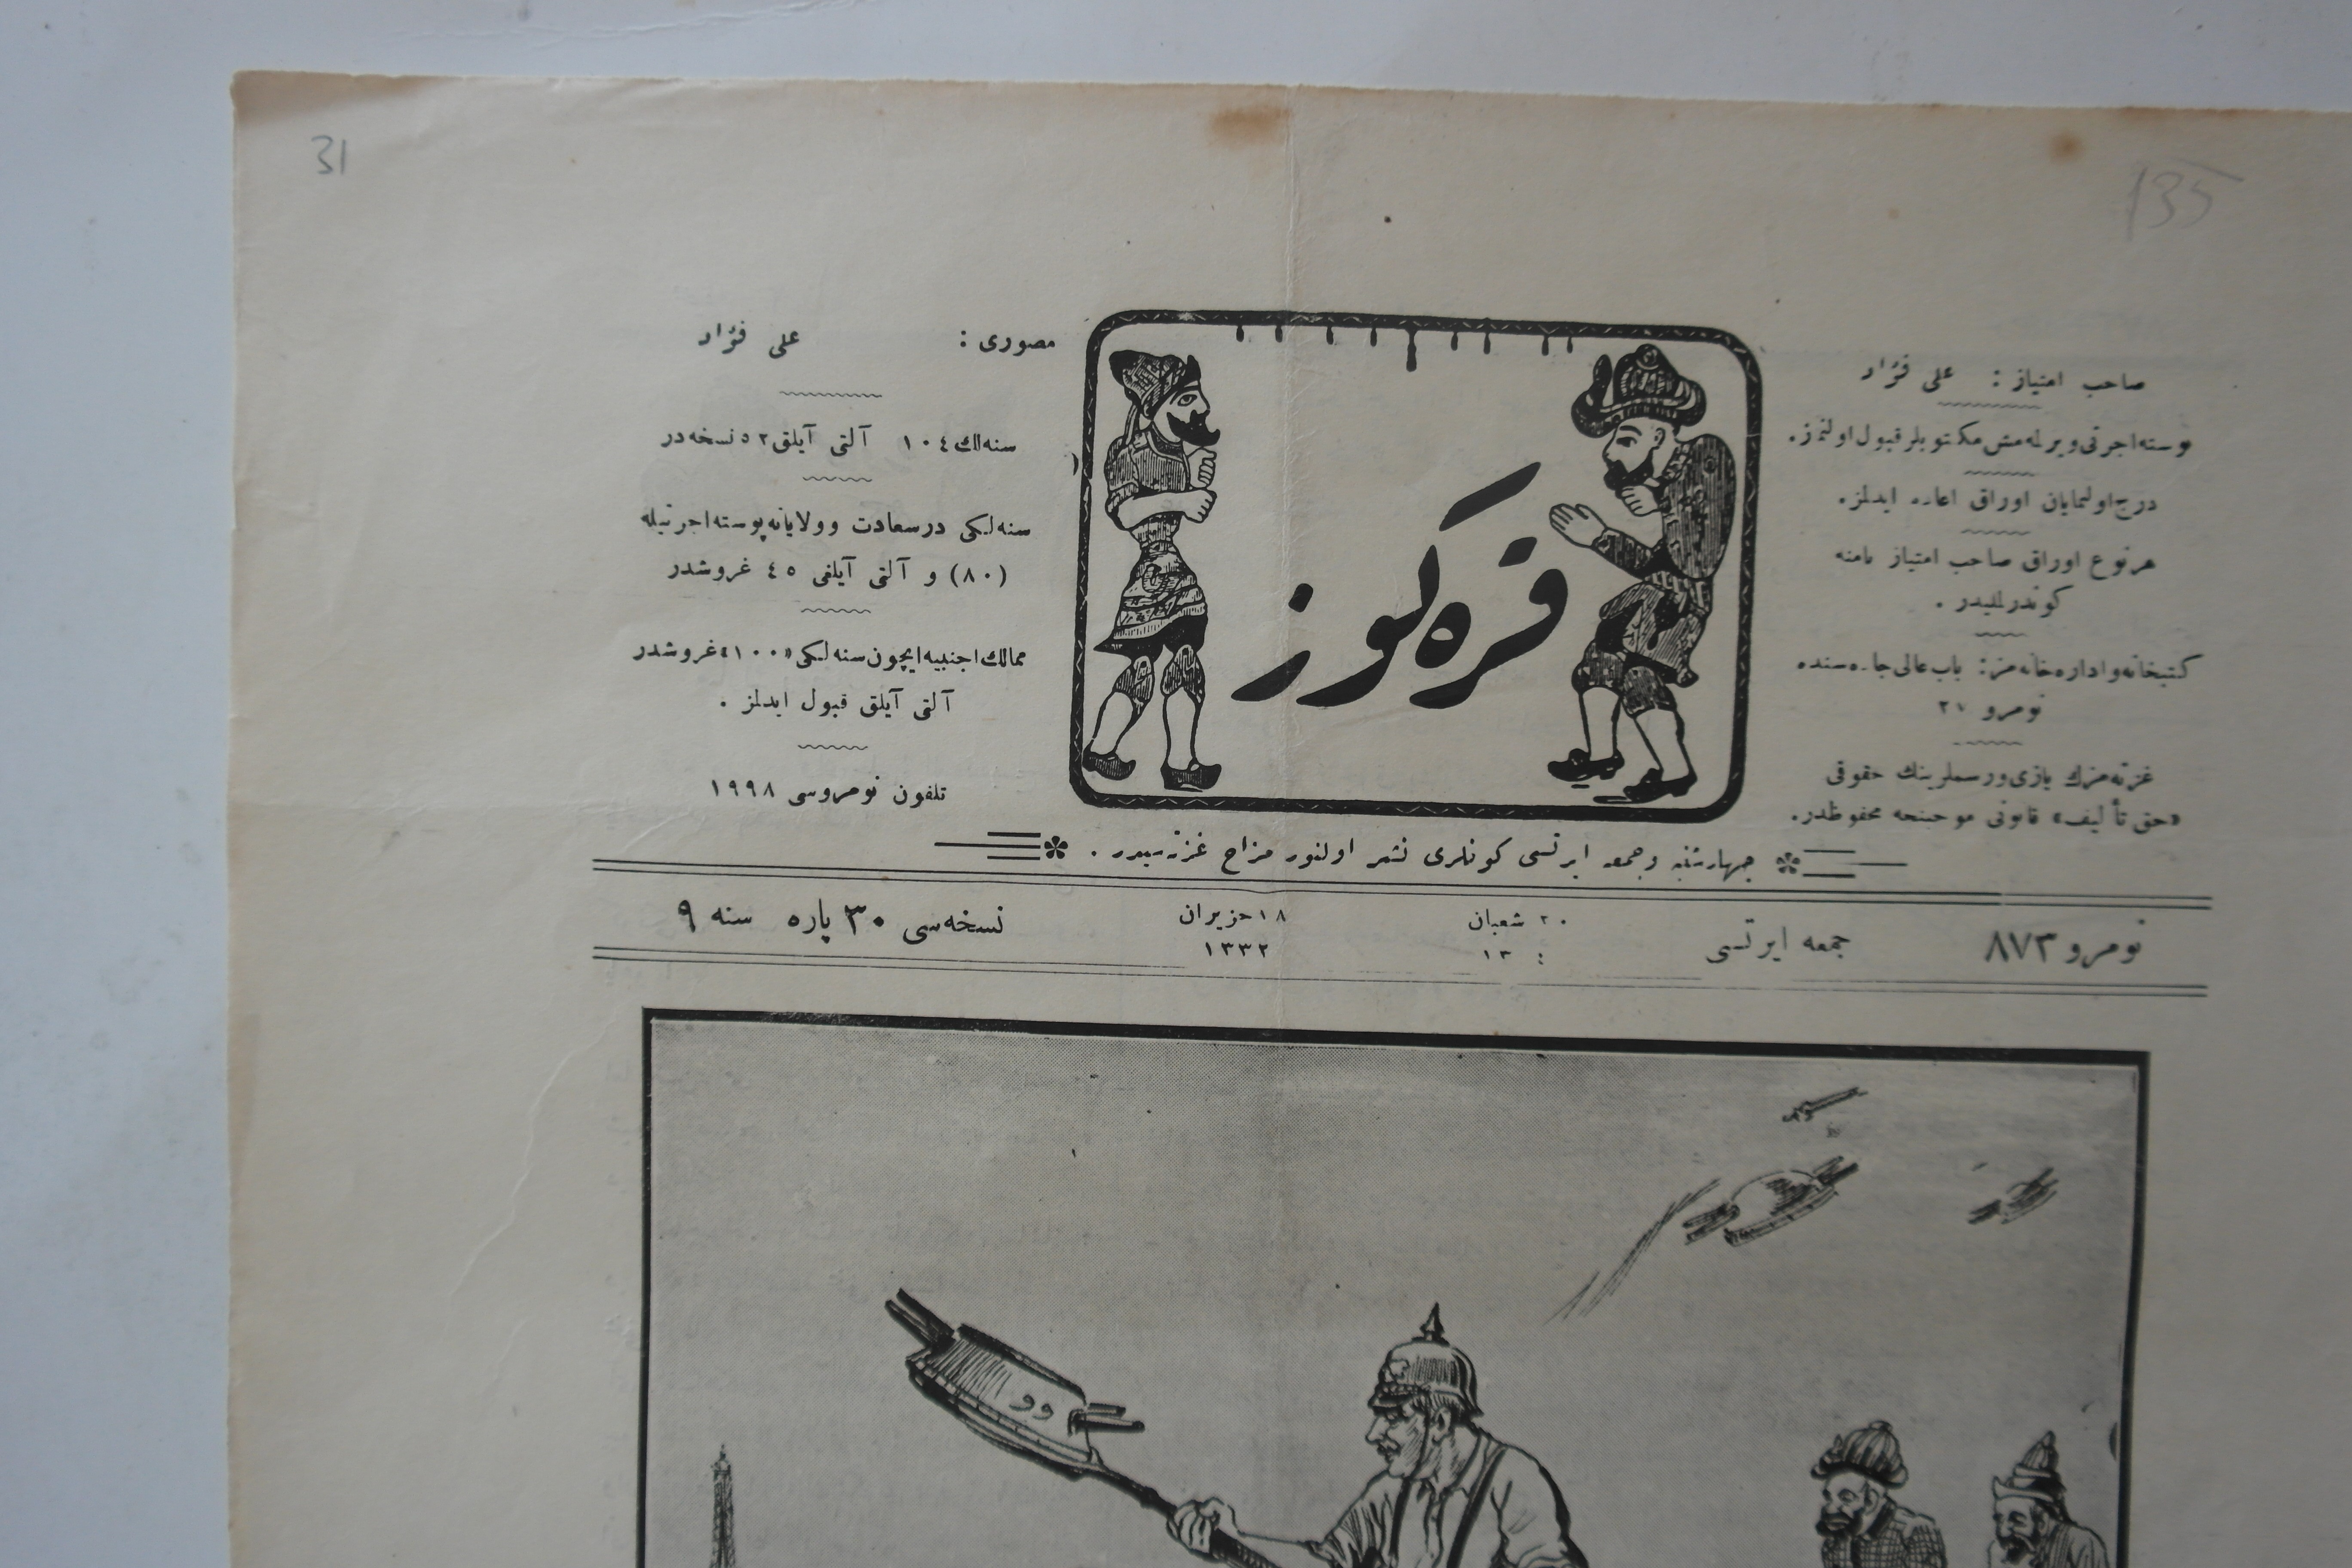 31
135
قره كوز
صاحب امتياز : على فؤاد
پوسته اجرتى ويرلمه مش مكتوبلر قبول اولنمز.
درج اولنمايان اوراق اعاده ايدلمز.
هر نوع اوراق صاحب امتياز نامنه
كوندرلميدر .
كتبخانه و اداره خانه مز : باب عالى جاده سنده
نومرو ٢٧
غزته مزك يازى و رسملرينك حقوقى
«حق تأليف» قانونى موجبنجه محفوظدر.
مصورى : على فؤاد
سنه لك ١٠٤ آلتى آيلق ٥٢ نسخه در
سنه لكى درسعادت و ولاياته پوسته اجرتيله
(٨٠) و آلتى آيلغى ٤٥ غروشدر
ممالك اجنبيه ايچون سنه لكى «١٠٠» غروشدر
آلتى آيلق قبول ايدلمز .
تلفون نومروسى ١٩٩٨
چهارشنبه و جمعه ايرتسى كونلرى نشر اولنور مزاح غزته سيدر .
نومرو ٨٧٣ جمعه ايرتسى ٢٠ شعبان ١٨ حزيران ١٣٣٢ نسخه سى ٣٠ پاره سنه ٩
وو